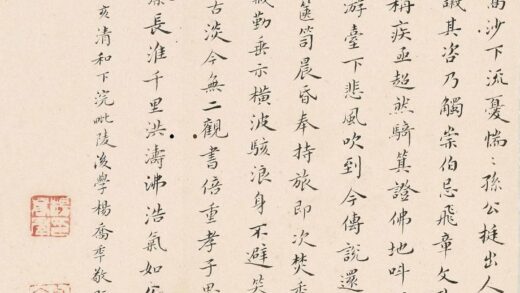 沙下流憂惴〻孫公挺出人
其咨乃觸崇伯忌飛章
稱疾亟超然騎箕證佛地叫
游臺下悲風吹到今傳說還
篋笥晨昏奉持旅即次焚
勤垂示橫波駭浪身不避笑
古淡今無二觀書倍重孝子思
長淮千里洪濤沸浩氣如
亥清和下浣毗陵後學楊喬季敬